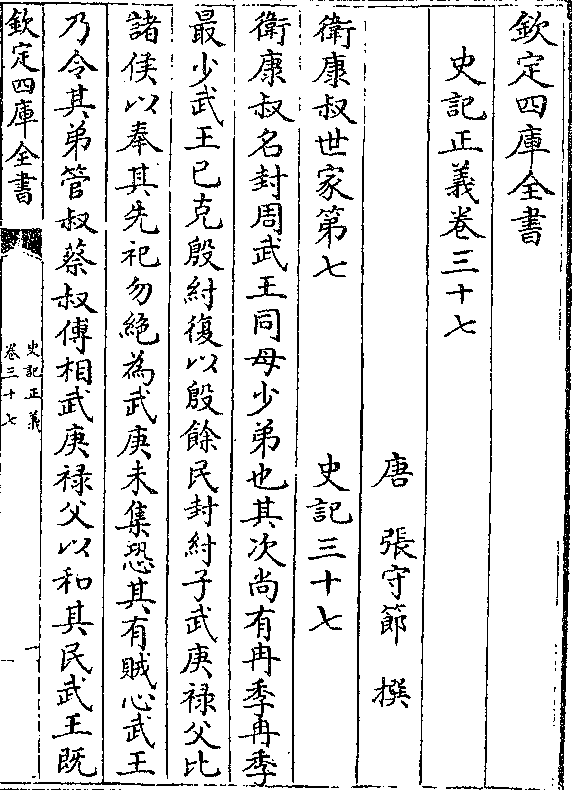 欽定四庫全書
史記正義卷三十七
唐 張守節 撰
衛康叔世家第七 史記三十七
衛康叔名封周武王同母少弟也其次尚有冉季冉季
最少武王已克殷紂復以殷餘民封紂子武庚禄父比
諸侯以奉其先祀勿絶為武庚未集恐其有賊心武王
乃令其弟管叔蔡叔傅相武庚禄父以和其民武王既
欽定四庫全書
史記正義
卷三十七
一